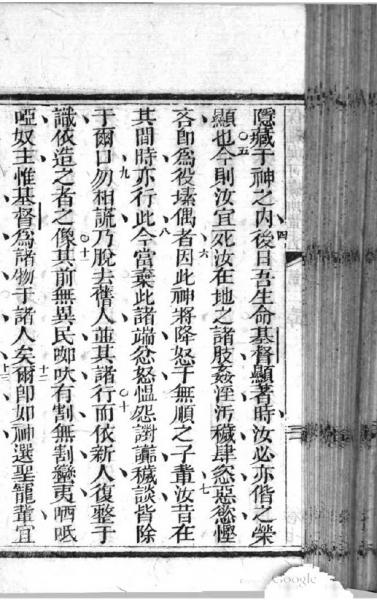 隱藏于神之內後日吾生命基督顯著時汝必亦偕之榮
顯也今則汝宜死汝在地之諸肢姦淫污穢肆慾惡慾慳
吝即為役塑偶者因此神將降怒于無順之子輩汝昔在
其間時亦行此今當棄此諸端忿怒慍怨謗讟穢談皆除
于爾口勿相謊乃脫去舊人並其諸行而依新人復整于
識依造之者之像其前無異民咖吹有割無割蠻夷哂呧
啞奴主惟基督為諸物于諸人矣爾即如神選聖寵輩宜
四
五
六
七
八
九
十
十
十二
Google